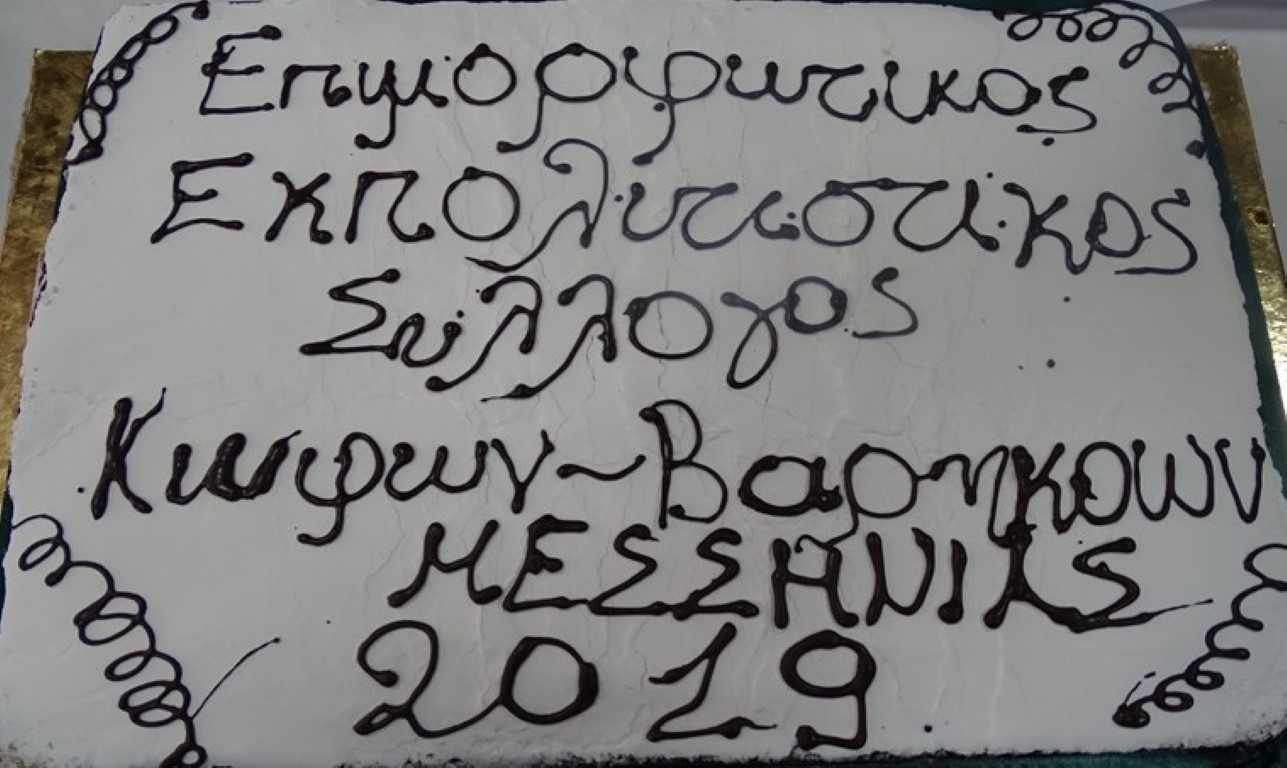 Επιμορφωτικος
Εκπολιτιστικος
Συλλογος
Κωφων-Βαρηκοων
ΜΕΣΣΗΝΙΑΣ
2019